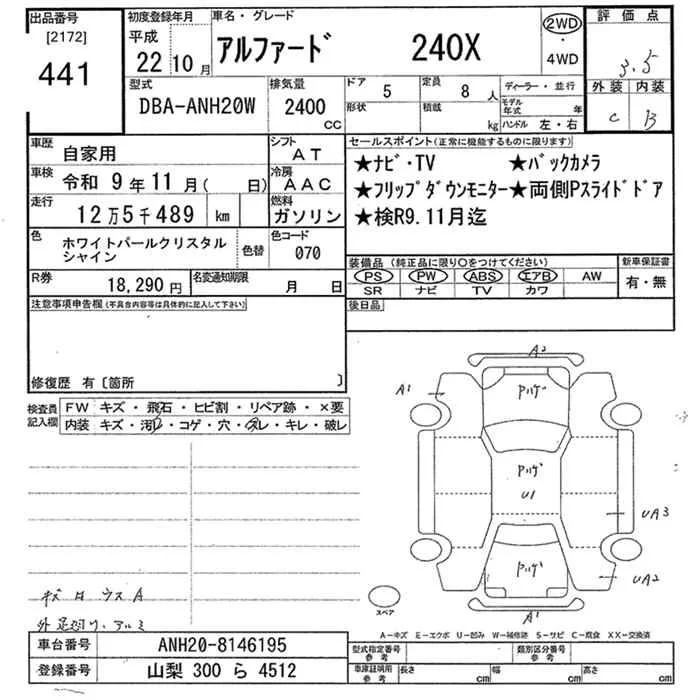 出品番号
[2172]
441
初度登録年月
平成
22 10 月
車名・グレード
アルファード 240X
2WD
・
4WD
評価点
3.5
外装 内装
C B
型式
DBA-ANH20W
排気量
2400
CC
ドア
5
定員
8 人
形状
積載
kg
ディーラー・並行
モデル年式 年
ハンドル 左・右
車歴
自家用
シフト
AT
車検
令和 9年 11月( 日)
冷房
AAC
走行
12万5千489 km
燃料
ガソリン
色
ホワイトパールクリスタル
シャイン
色替
色コード
070
R券
18,290 円
名変通知期限
月 日
セールスポイント(正常に機能するものに限ります)
★ナビ・TV ★バックカメラ
★フリップダウンモニター★両側Pスライドドア
★検R9.11月迄
装備品 (純正品に限り○をつけてください)
PS PW ABS エアB AW
SR ナビ TV カワ
新車保証書
有・無
後日品
注意事項申告欄(不具合内容等は具体的に記入して下さい)
修復歴 有〔箇所 〕
検査員
記入欄
FW キズ・飛石・ヒビ割・リペア跡・×要
内装 キズ・汚レ・コゲ・穴・スレ・キレ・破レ
A2
A1
パハゲ
パハゲ
U1
UA3
パハゲ
UA2
A1
スペア
A-キズ E-エクボ U-凹み W-補修跡 S-サビ C-腐食 XX-交換済
車台番号 ANH20-8146195
登録番号 山梨 300 ら 4512
型式指定番号
参考
類別区分番号
参考
車庫証明用
参考
長さ cm 幅 cm 高さ cm